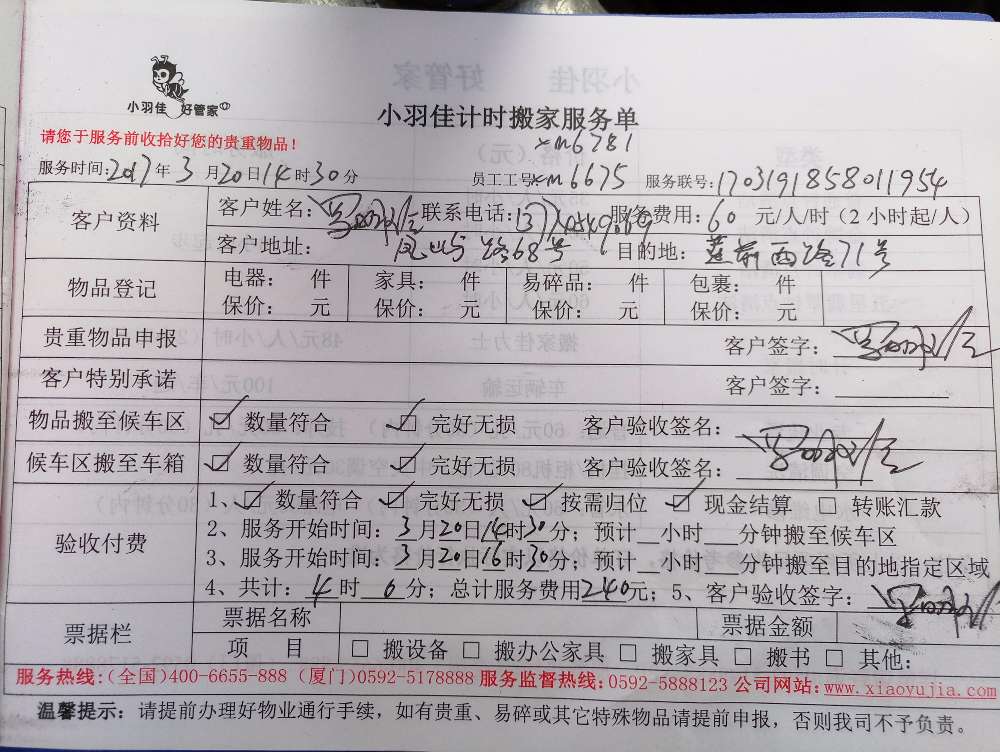 小羽佳 好管家
小羽佳计时搬家服务单
请您于服务前收拾好您的贵重物品！
xm6781
服务时间:2017年3月20日14时30分 员工工号:xm6675 服务联号:1703191858011954
客户资料 客户姓名: 联系电话: 服务费用:60元/人/时（2小时起/人）
客户地址: 凤屿路68号 目的地: 莲前西路71号
物品登记 电器: 件 家具: 件 易碎品: 件 包裹: 件
保价: 元 保价: 元 保价: 元 保价: 元
贵重物品申报 客户签字:
客户特别承诺 客户签字:
物品搬至候车区 ☑ 数量符合 ☑ 完好无损 客户验收签名:
候车区搬至车箱 ☑ 数量符合 ☑ 完好无损 客户验收签名:
验收付费 1、☑ 数量符合 ☑ 完好无损 ☑ 按需归位 ☑ 现金结算 □ 转账汇款
2、服务开始时间: 3月20日14时30分; 预计__小时___分钟搬至候车区
3、服务开始时间: 3月20日16时30分; 预计__小时___分钟搬至目的地指定区域
4、共计: 4时 0分; 总计服务费用240元; 5、客户验收签字:
票据栏 票据名称 票据金额
项 目 □ 搬设备 □ 搬办公家具 □ 搬家具 □ 搬书 □ 其他:
服务热线:(全国)400-6655-888 (厦门)0592-5178888 服务监督热线:0592-5888123 公司网站:www.xiaoyujia.com
温馨提示: 请提前办理好物业通行手续，如有贵重、易碎或其它特殊物品请提前申报，否则我司不予负责。